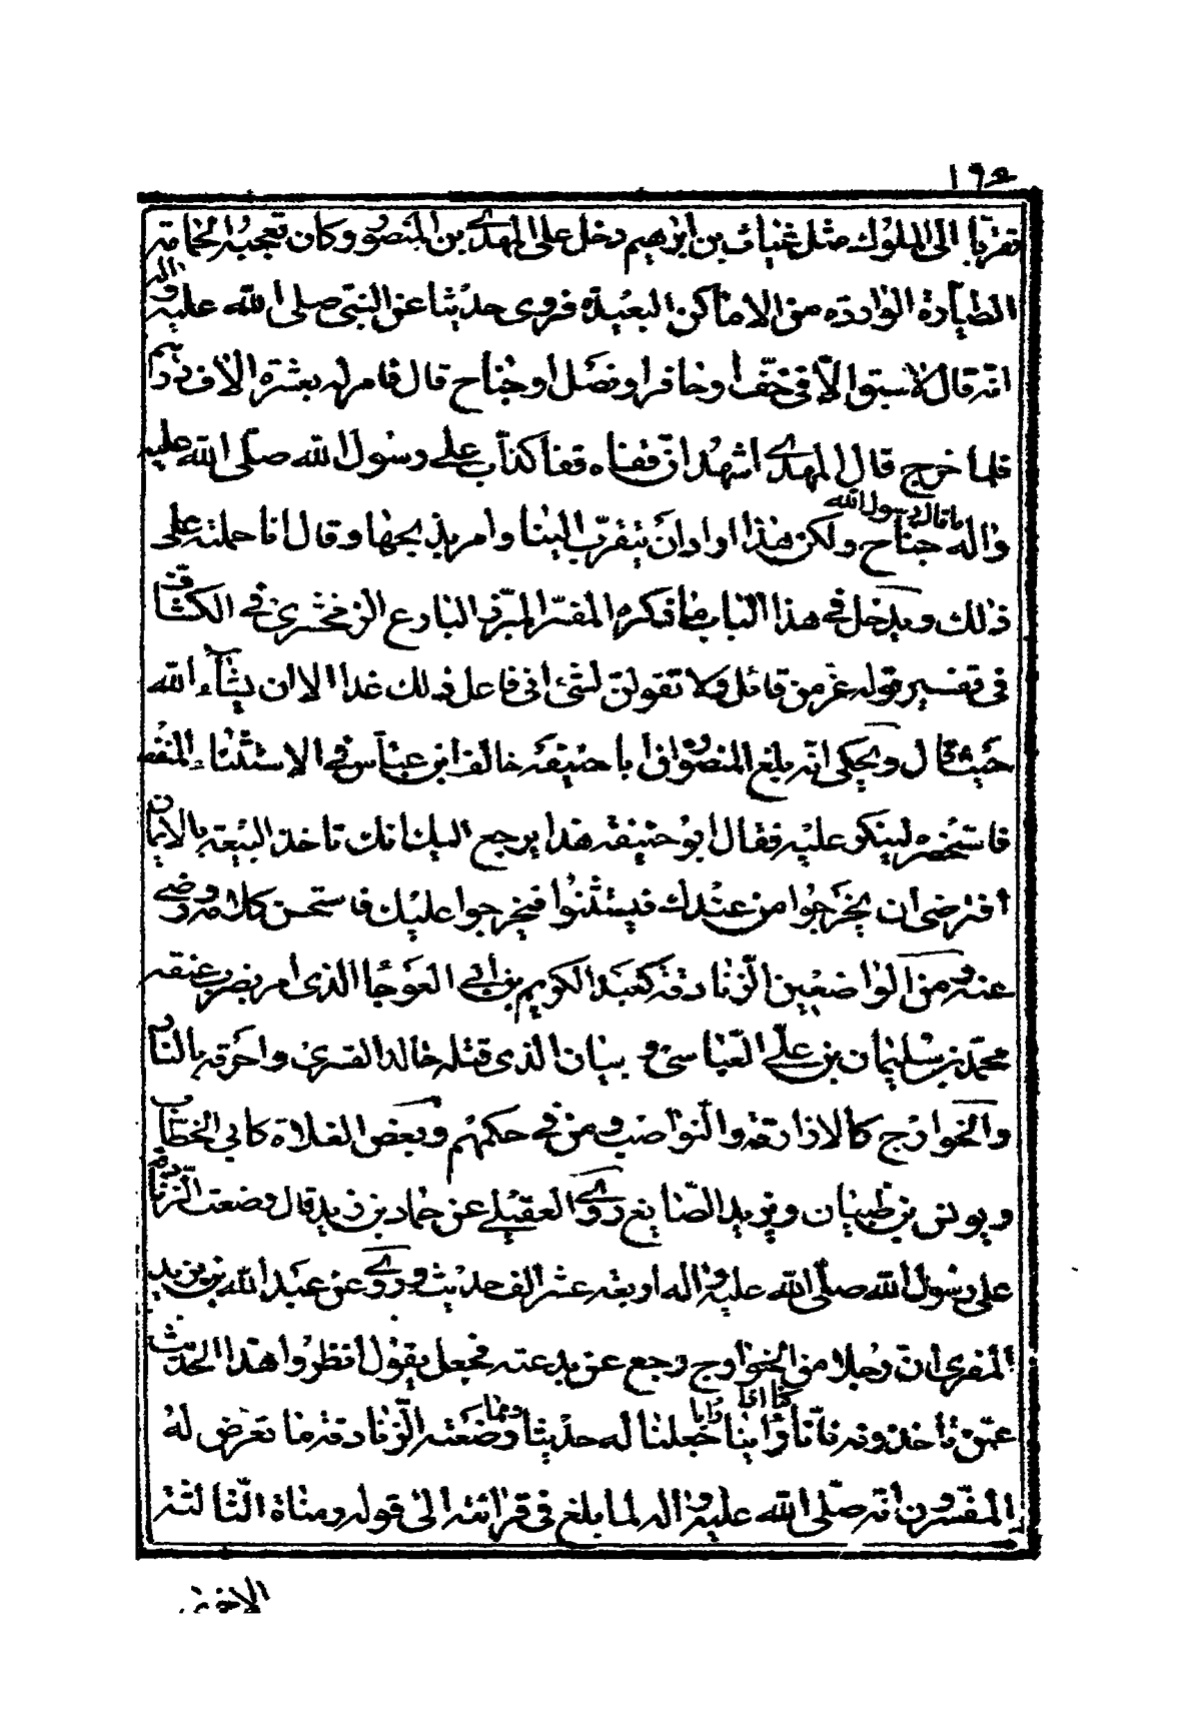 ١٩٤
تقرّبا الى الملوك مثل غياث بن ابرهيم دخل على المهدي بن المنصور وكان تعجبه الحمامة
الطيارة الواردة من الاماكن البعيدة فروى حديثا عن النبى صلى الله عليه واله
انه قال لا سبق الّا فى خفّ او حافر او نصل او جناح قال فامر له بعشرة الاف درهم
فلما خرج قال المهدي اشهد انّ قفاه قفا كذّاب على رسول الله صلّى الله عليه
واله ما قال رسول الله جناح ولكن هذا اراد ان يتقرّب الينا وامر بذبحها وقال انا حملته على
ذلك ويدخل في هذا الباب ما ذكره المفسّر المبرّز البارع الزمخشري في الكشاف
فى تفسير قوله عز من قائل ولا تقولن لشئ انى فاعل ذلك غدا الا ان يشآء الله
حيث قال ويحكى انه بلغ المنصور ان ابا حنيفة خالف ابن عباس في الاستثناء المنفصل
فاستحضره لينكر عليه فقال ابو حنيفة هذا يرجع اليك انك تاخذ البيعة بالايمان
افترضى ان يخرجوا من عندك فيستثنوا فيخرجوا عليك فاستحسن كلامه ورضي
عنه ومن الواضعين الزنادقة كعبد الكريم بن ابي العوجا الذى امر بضرب عنقه
محمّد بن سليمان بن علي العبّاسى و بيان الذى قتله خالد القسرى واحرقه بالنار
والخوارج كالازارقة والنواصب ومن في حكمهم وبعض الغلاة كابى الخطاب
ويونس بن ظبيان ويزيد الصّايغ روي العقيلي عن حماد بن زيد قال وضعت الزنادقة
على رسول الله صلّى الله عليه واله اربعة عشر الف حديث وروي عن عبد الله بن يزيد
المقرى انّ رجلا من الخوارج رجع عن بدعته فجعل يقول انظروا هذا الحديث
عمّن تاخذونه فانّا كنا اذا راينا رايا جعلنا له حديثا ومما وضعته الزنادقة ما تعرّض له
المفسّرون انّه صلّى الله عليه واله لما بلغ فى قرائته الى قوله ومناة الثّالثة
الاخرى